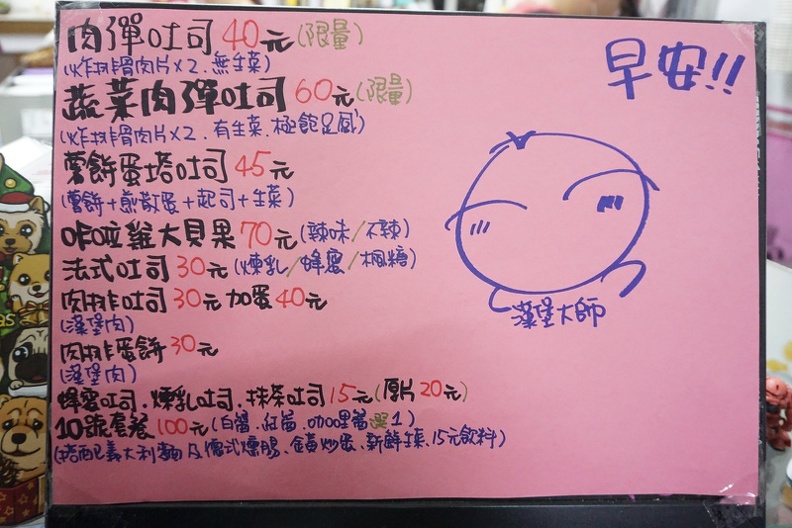 肉彈吐司 40元(限量)
(炸排骨肉片x2.無生菜)
蔬菜肉彈吐司 60元(限量)
(炸排骨肉片x2.有生菜.極飽足感)
薯餅蛋塔吐司 45元
(薯餅+煎散蛋+起司+生菜)
咔啦雞大貝果 70元(辣味/不辣)
法式吐司 30元(煉乳/蜂蜜/楓糖)
肉排吐司 30元 加蛋 40元
(漢堡肉)
肉排蛋餅 30元
(漢堡肉)
蜂蜜吐司.煉乳吐司.抹茶吐司 15元(厚片 20元)
10號套餐 100元(白醬.紅醬.咖哩醬選1)
(搭配義大利麵及德式燻腸、金黃炒蛋、新鮮生菜、15元飲料)
早安!!
漢堡大師